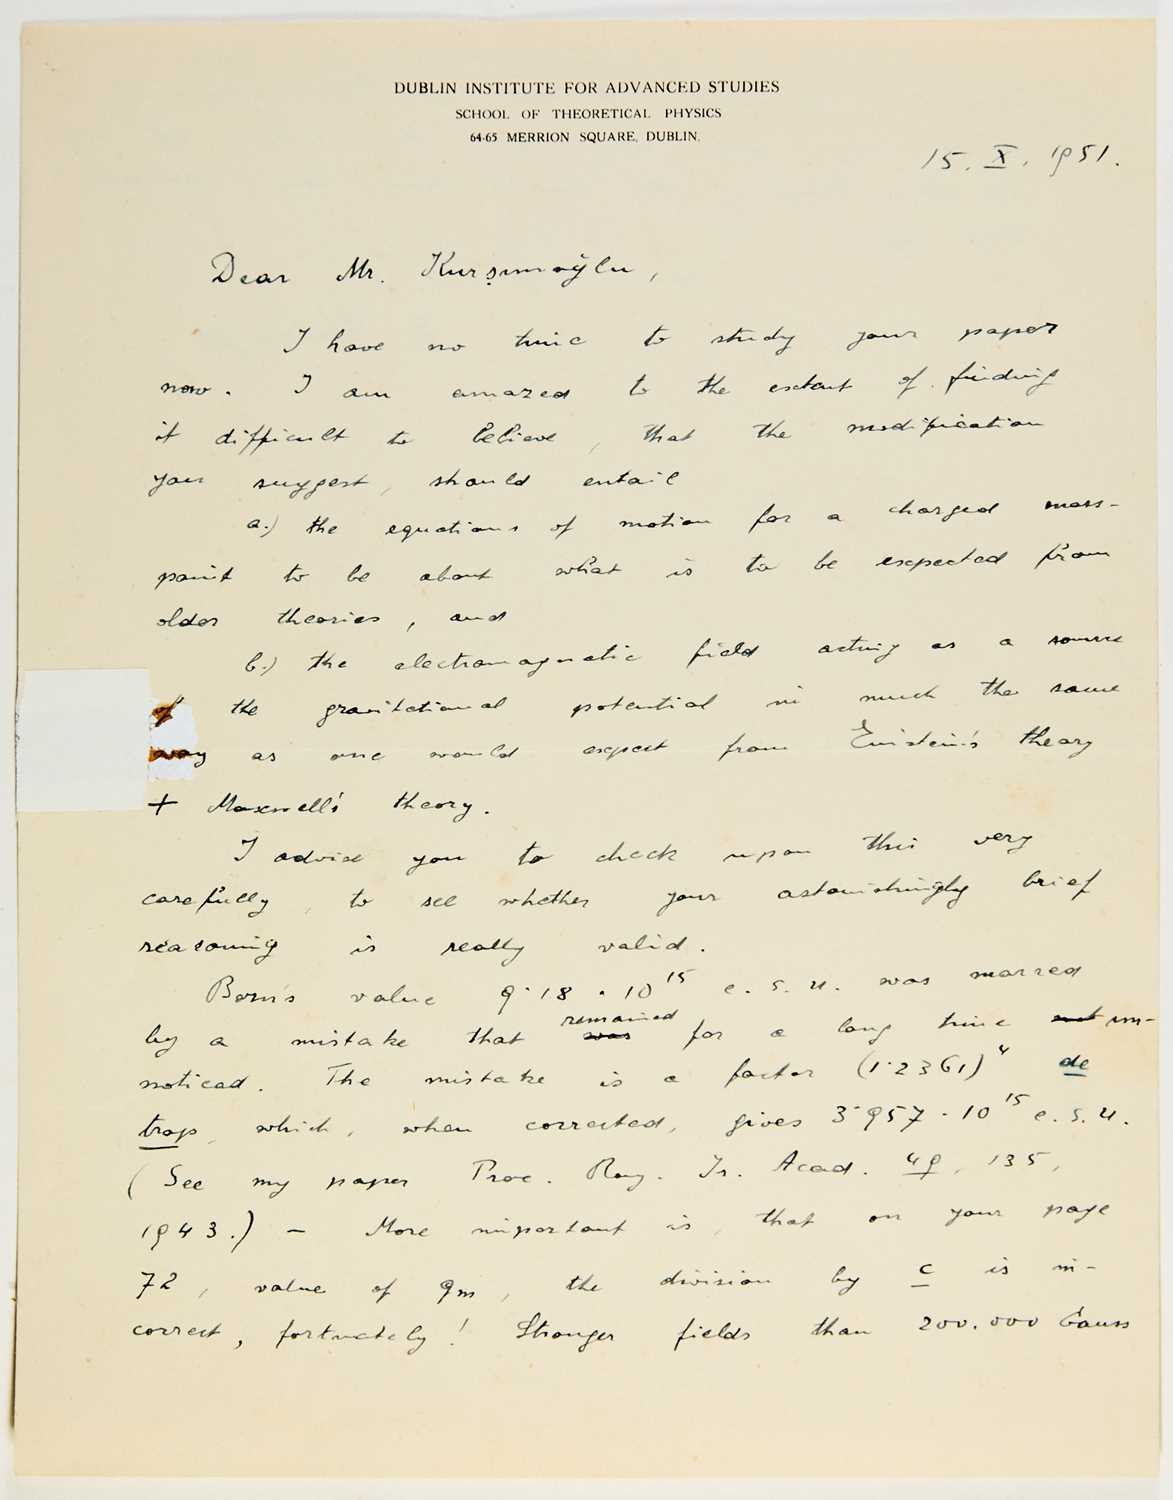 DUBLIN INSTITUTE FOR ADVANCED STUDIES
SCHOOL OF THEORETICAL PHYSICS
64-65 MERRION SQUARE, DUBLIN.
15. X. 1951.
Dear Mr. Kurşunoğlu,
I have no time to study your paper
now. I am amazed to the extent of finding
it difficult to believe, that the modification
you suggest, should entail
a.) the equations of motion for a charged mass-
point to be about what is to be expected from
older theories, and
b.) the electromagnetic field acting as a source
of the gravitational potential in much the same
way as one would expect from Einstein's theory
+ Maxwell's theory.
I advise you to check upon this very
carefully, to see whether your astonishingly brief
reasoning is really valid.
Born's value 9·18 · 10¹⁵ e.s.u. was marred
by a mistake that was remained for a long time not un-
noticed. The mistake is a factor (1·2361)⁴ de
trop, which, when corrected, gives 3·957 · 10¹⁵ e.s.u.
(See my paper Proc. Roy. Ir. Acad. 49, 135,
1943.) – More important is, that on your page
72, value of qm, the division by c is in-
correct, fortunately! Stronger fields than 200.000 Gauss